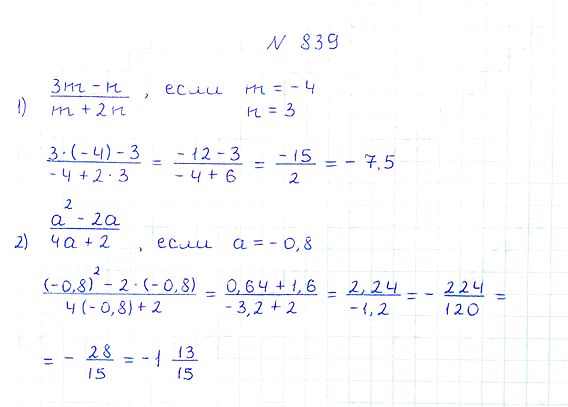 N 839
1) (3m - n)/(m + 2n), если m = -4
n = 3
(3·(-4) - 3)/(-4 + 2·3) = (-12 - 3)/(-4 + 6) = (-15)/2 = - 7,5
2) (a² - 2a)/(4a + 2), если a = -0,8
((-0,8)² - 2·(-0,8))/(4(-0,8) + 2) = (0,64 + 1,6)/(-3,2 + 2) = (2,24)/(-1,2) = - 224/120 =
= - 28/15 = -1 13/15